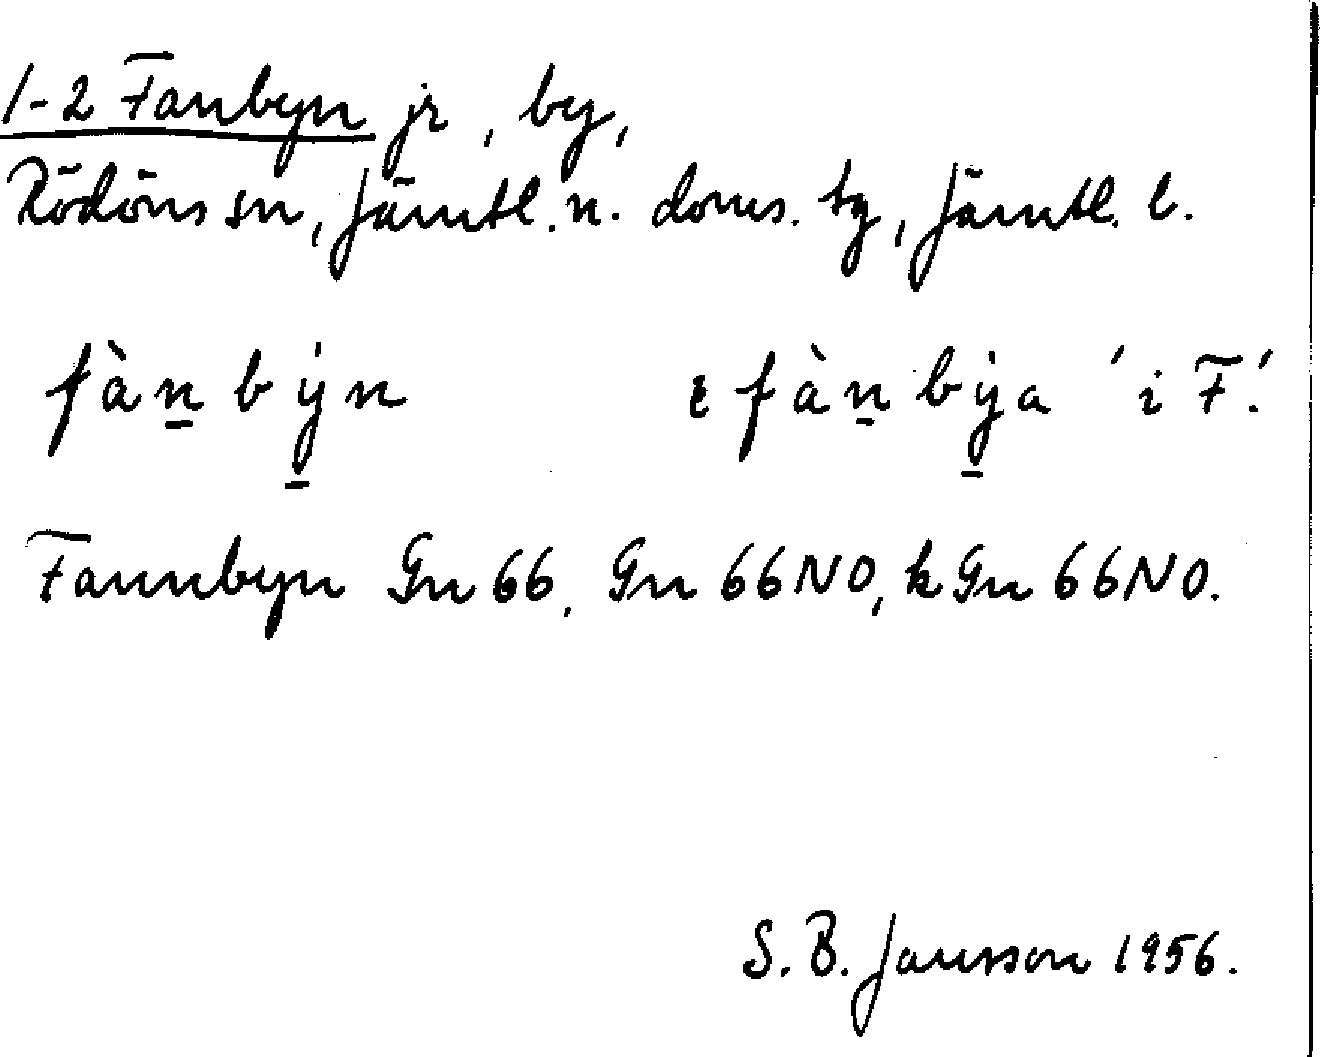 1-2 Fanbyn jr, by,
Rödöns sn, Jämtl. n. doms. tg, Jämtl. l.
fàn̲bý̲n ɛ fàn̲bý̲a 'i F.'
Fannbyn Gn 66, Gn 66 NO, k Gn 66 NO.
S. B. Jansson 1956.